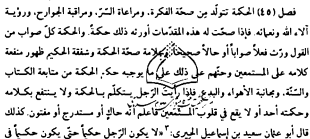 فصل (٤٥) الحكمة تتولّد مِن صحّة الفكرة. ومراعاة السرّ، ومراقبة الجوارح، ورؤية
آلاء الله ونعمائه. فإذا صحّت له هذه المقدّمات أورثه ذلك حكمةً. والحكمة كلّ صواب من
القول ورّث فعلاً صواباً أو حالاً صحيحاً. وعلامة صحّة الحكمة وشفقة الحكيم ظهور منفعة
كلامه على المستمعين وحثّهم على ذلك على ما يوجبه حكم الحكمة من متابعة الكتاب
والسنّة، ومجانبة الأهواء والبدع. فإذا رأيت الرجل يتكلّم بالحكمة ولا ينتفع بكلامه
وحكمته أحد أو لا يقع في قلوب المستمعين فاعلم أنّه حالٍ أو مستدرج أو مفتون. كذلك
قال أبو عثمان سعيد بن إسماعيل الحيري: «لا يكون الرجل حكيماً حتّى يكون حكيماً في